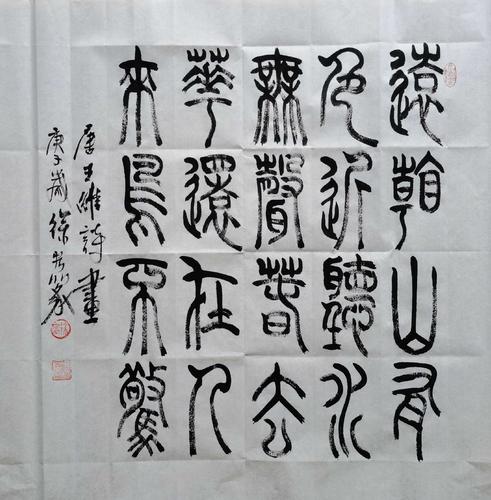 遠看山有
色近聽水
無聲春去
華還在人
來鳥不驚
唐王維詩畫
庚子歲徐篆